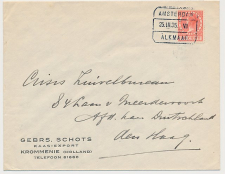 AMSTERDAM
25.III.35. VII
ALKMAAR
Crisis Zuivelbureau
84 Laan v Meerdervoort
Afd. van Duitschland
den Haag.
GEBRS. SCHOTS
KAAS-EXPORT
KROMMENIE (HOLLAND)
TELEFOON 81660